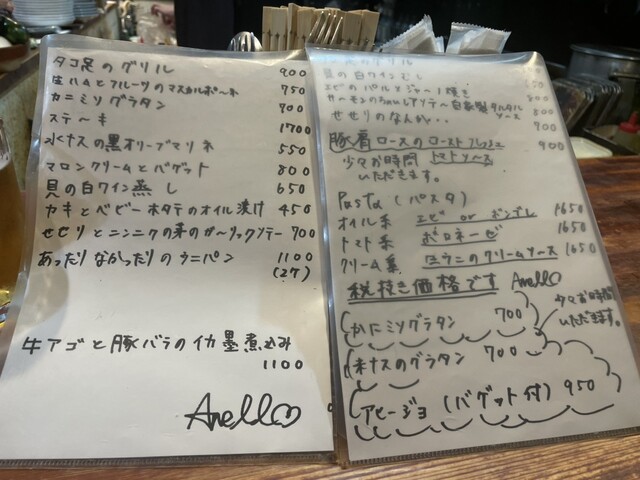 タコ足のグリル 900
生ハムとフルーツのマスカルポーネ 750
カニミソグラタン 700
ステーキ 1700
水ナスの黒オリーブマリネ 550
マロンクリームとバゲット 800
貝の白ワイン蒸し 650
カキとベビーホタテのオイル漬け 450
せせりとニンニクの芽のガーリックソテー 700
あったりなかったりのウニパン 1100
(2ケ)
牛アゴと豚バラのイカ墨煮込み
1100
Anello
足のグリル
貝の白ワインむし
エビのパルミジャーノ焼き 800
サーモンの 自家製タルタル
ソース 800
せせりのなんか・・ 700
豚肩ロースのロースト フレッシュ
トマトソース 900
少々お時間
いただきます。
Pasta (パスタ)
オイル系 エビ or ボンゴレ 1650
トマト系 ボロネーゼ 1650
クリーム系 ほうらのクリームソース 1650
税抜き価格です Anello
かにミソグラタン 700
少々お時間
いただきます。
米ナスのグラタン 700
アヒージョ (バゲット付) 950